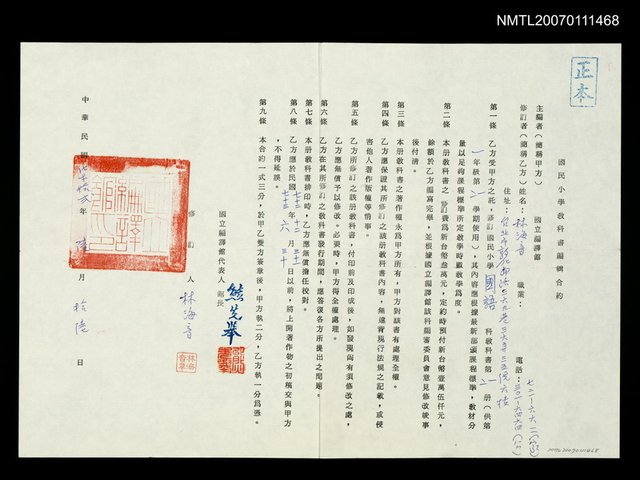 NMTL20070111468
正本
國民小學教科書編輯合約
主編者(簡稱甲方) 國立編譯館
修訂者(簡稱乙方)姓名：林海音 職業： 電話：
住址：
第一條 乙方受甲方之託，修訂國民小學 國語 科教科書第 二 册(供第
一年級第 二 學期使用)，其內容應根據最新部頒課程標準，教材分
量以足夠課程標準所定教學時數教學為度。
第二條 本册教科書之修訂費為新台幣叁萬元，定約時預付新台幣壹萬伍仟元，
餘額於乙方編寫完畢，並根據國立編譯館該科編審委員會意見修改竣事
後付清。
第三條 本册教科書之著作權永為甲方所有，甲方對該書有處理全權。
第四條 乙方應保證其所修訂之該册教科書內容，無違背現行法規之記載，或侵
害他人著作版權等情事。
第五條 乙方所修訂之該册教科書，付印前及印成後，如發現尚有須修改之處，
乙方應無償予以修改。必要時，甲方得全權處理。
第六條 乙方在其所修訂之教科書發行期間，應答復各方所提出之問題。
第七條 本册教科書排印時，乙方應無償擔任校對。
第八條 乙方應於民國 年 月 日以前，將上開著作物之初稿交與甲方
，不得延誤。
第九條 本合約一式三分，於甲乙雙方簽章後，甲方執二分，乙方執一分為憑。
國立編譯館代表人 館長 熊先舉
修訂人 林海音
中華民國 年 月 拾陸 日
NMTL20070111468